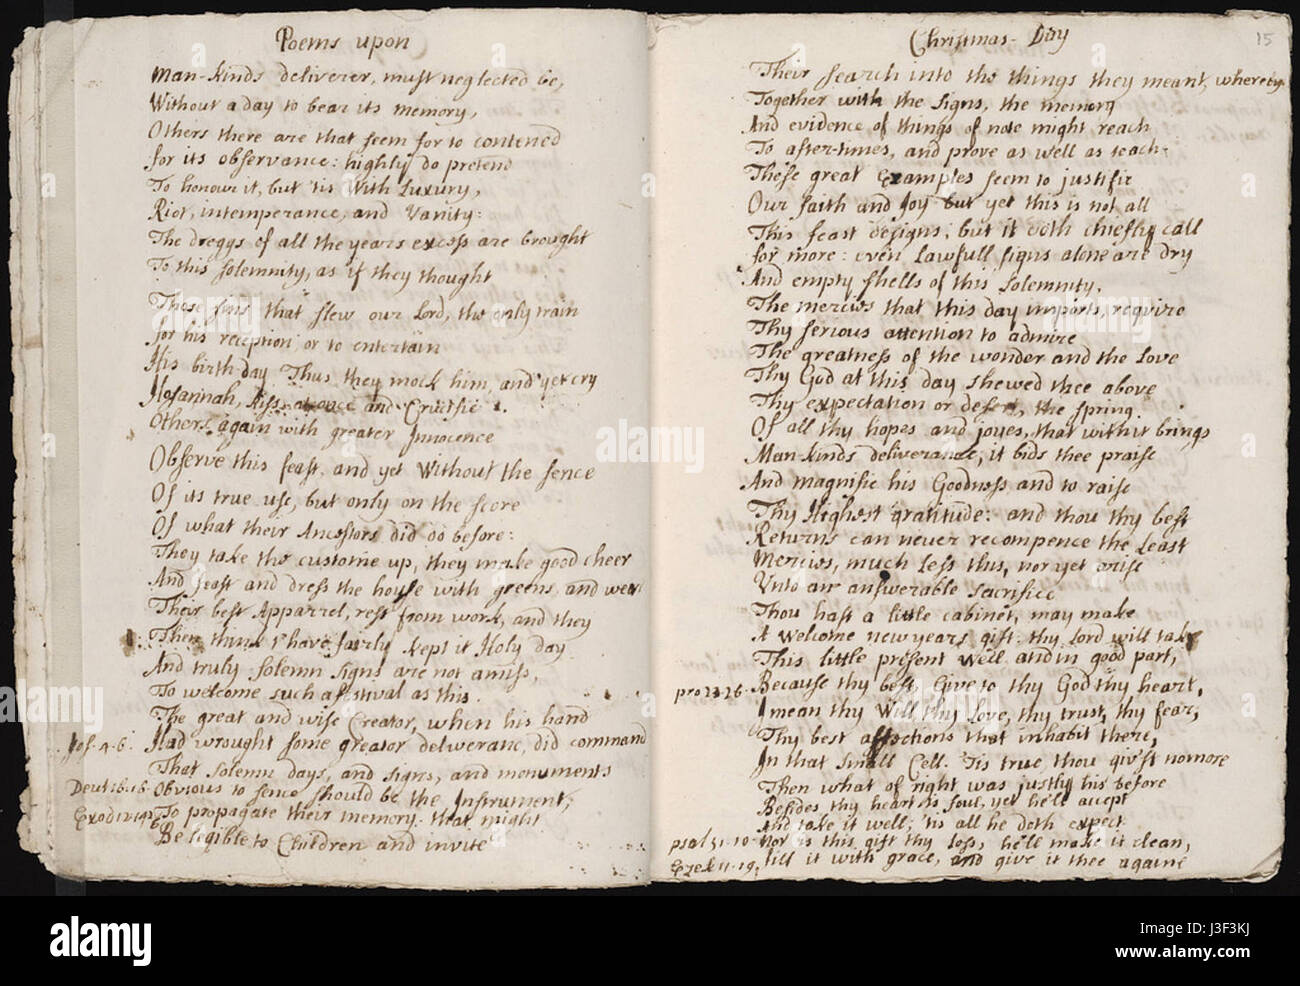 Poems upon
Man-kinds deliverer, must neglected be,
Without a day to bear its memory,
Others there are that seem for to contened
for its observance: highly do pretend
To honour it, but 'tis With Luxury,
Riot, intemperance, and Vanity:
The dreggs of all the years excess are brought
To this solemnity, as if they thought
Those sins that slew our Lord, the only train
for his reception, or to entertain
His birth-day. Thus they mock him, and yet cry
Hosannah, kiss at once and Crucifie
Others again with greater Innocence
Observe this feast, and yet Without the sence
Of its true use, but only on the score
Of what their Ancestors did do before:
They take the custome up, they make good cheer
And feast and dress the house with greens, and wear
Their best Apparrel, rest from work, and they
Then think I have fairly kept it Holy day
And truly solemn signs are not amiss,
To welcome such a festival as this.
The great and wise Creator, when his hand
Jos. 4. 6. Had wrought some greator deliveranc, did command
That solemn days, and signs, and monuments
Deut 16. 16 Obvious to sence should be the Instrument,
Exod 12. 14 To propagate their memory. that might
Be legible to Children and invite
Christmas-Day
15
Their search into the things they meant, whereby
Together with the signs, the memory
And evidence of things of note might reach
To after-times, and prove as well as teach.
These great Examples seem to justifie
Our faith and Joy but yet this is not all
This feast designs; but it doth chiefly call
for more: even Lawfull signs alone are dry
And empty shells of this solemnity.
The mercies that this day imports, require
Thy serious attention to admire
The greatness of the wonder and the Love
Thy God at this day shewed thee above
Thy expectation or desert, the spring
Of all thy hopes and joyes, that with it brings
Man-kinds deliverance, it bids thee praise
And magnifie his Goodness and to raise
Thy Highest gratitude: and thou thy best
Returns can never recompence the Least
Mercies, much Less this, nor yet arise
Unto an answerable Sacrifice
Thou hast a little cabinet, may make
A welcome new years gift. thy Lord will take
This little present well and in good part,
pro 23 26. Because thy best, Give to thy God thy heart,
I mean thy Will, thy Love, thy trust, thy fear,
Thy best affections that inhabit there,
In that small Cell. 'Tis true thou giv'st no more
Then what of right was justly his before
Besides thy heart is foul, yet he'll accept
And take it well; 'tis all he doth expect
psal 51. 10 Nor is this gift thy Loss, he'll make it clean,
Ezek 11. 19. fill it with grace, and give it thee againe
alamy
a
alamy stock photo
J3F3KJ
www.alamy.com